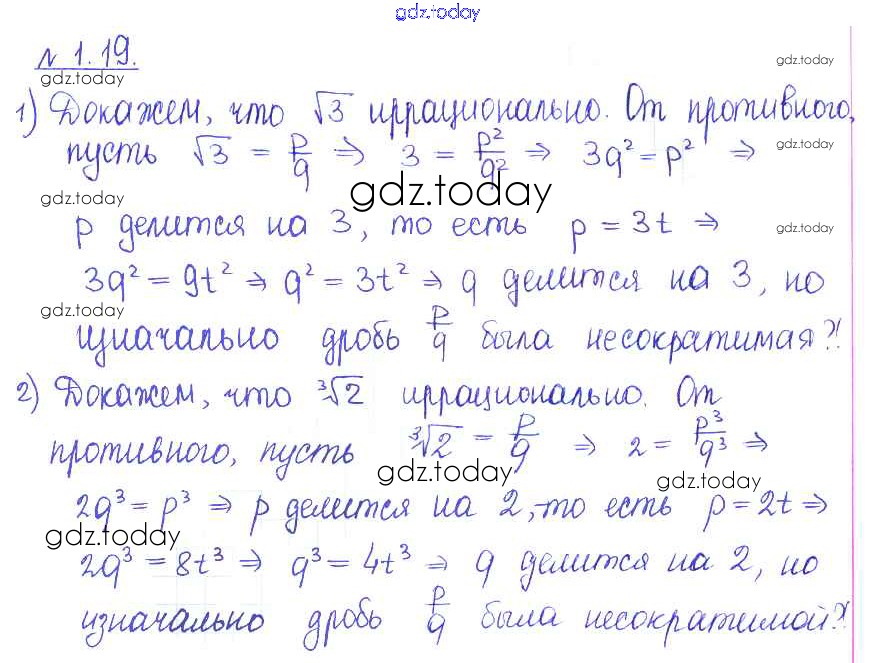 gdz.today
№ 1.19.
gdz.today
gdz.today
1) Докажем, что √3 иррационально. От противного,
пусть √3 = p/q ⇒ 3 = p²/q² ⇒ 3q² = p² ⇒
gdz.today
gdz.today
gdz.today
p делится на 3, то есть p = 3t ⇒
gdz.today
3q² = 9t² ⇒ q² = 3t² ⇒ q делится на 3, но
gdz.today
изначально дробь p/q была несократимая?!
2) Докажем, что ∛2 иррационально. От
противного, пусть ∛2 = p/q ⇒ 2 = p³/q³ ⇒
gdz.today
gdz.today
2q³ = p³ ⇒ p делится на 2, то есть p = 2t ⇒
gdz.today
2q³ = 8t³ ⇒ q³ = 4t³ ⇒ q делится на 2, но
изначально дробь p/q была несократимой?!